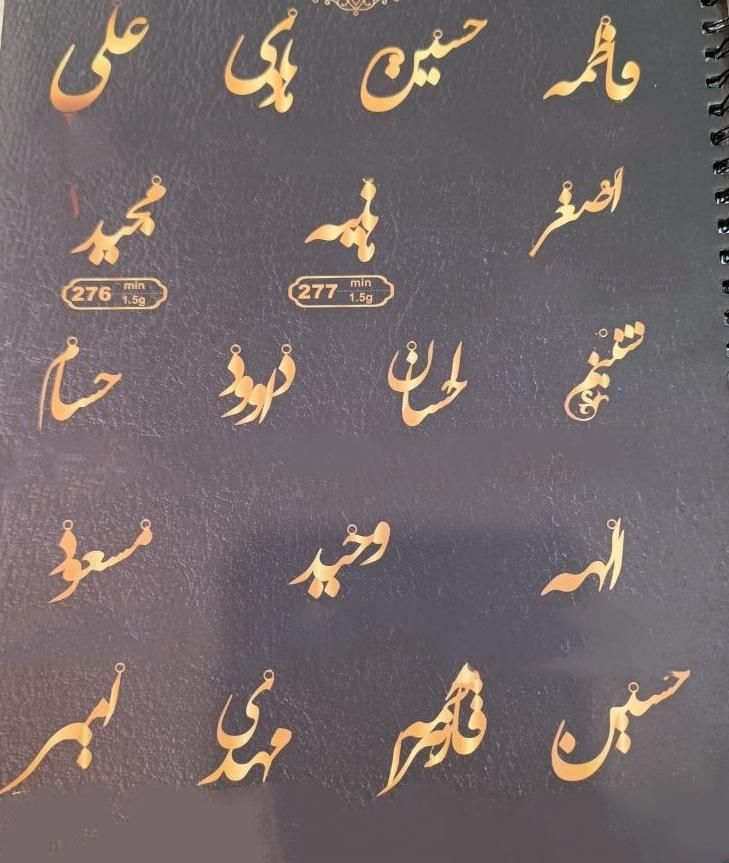 فاطمه حسین هادی علی
اصغر هانیه مجید
277 min 1.5g 276 min 1.5g
احسان داوود حسام
الهه وحید مسعود
حسین مهدی امیر